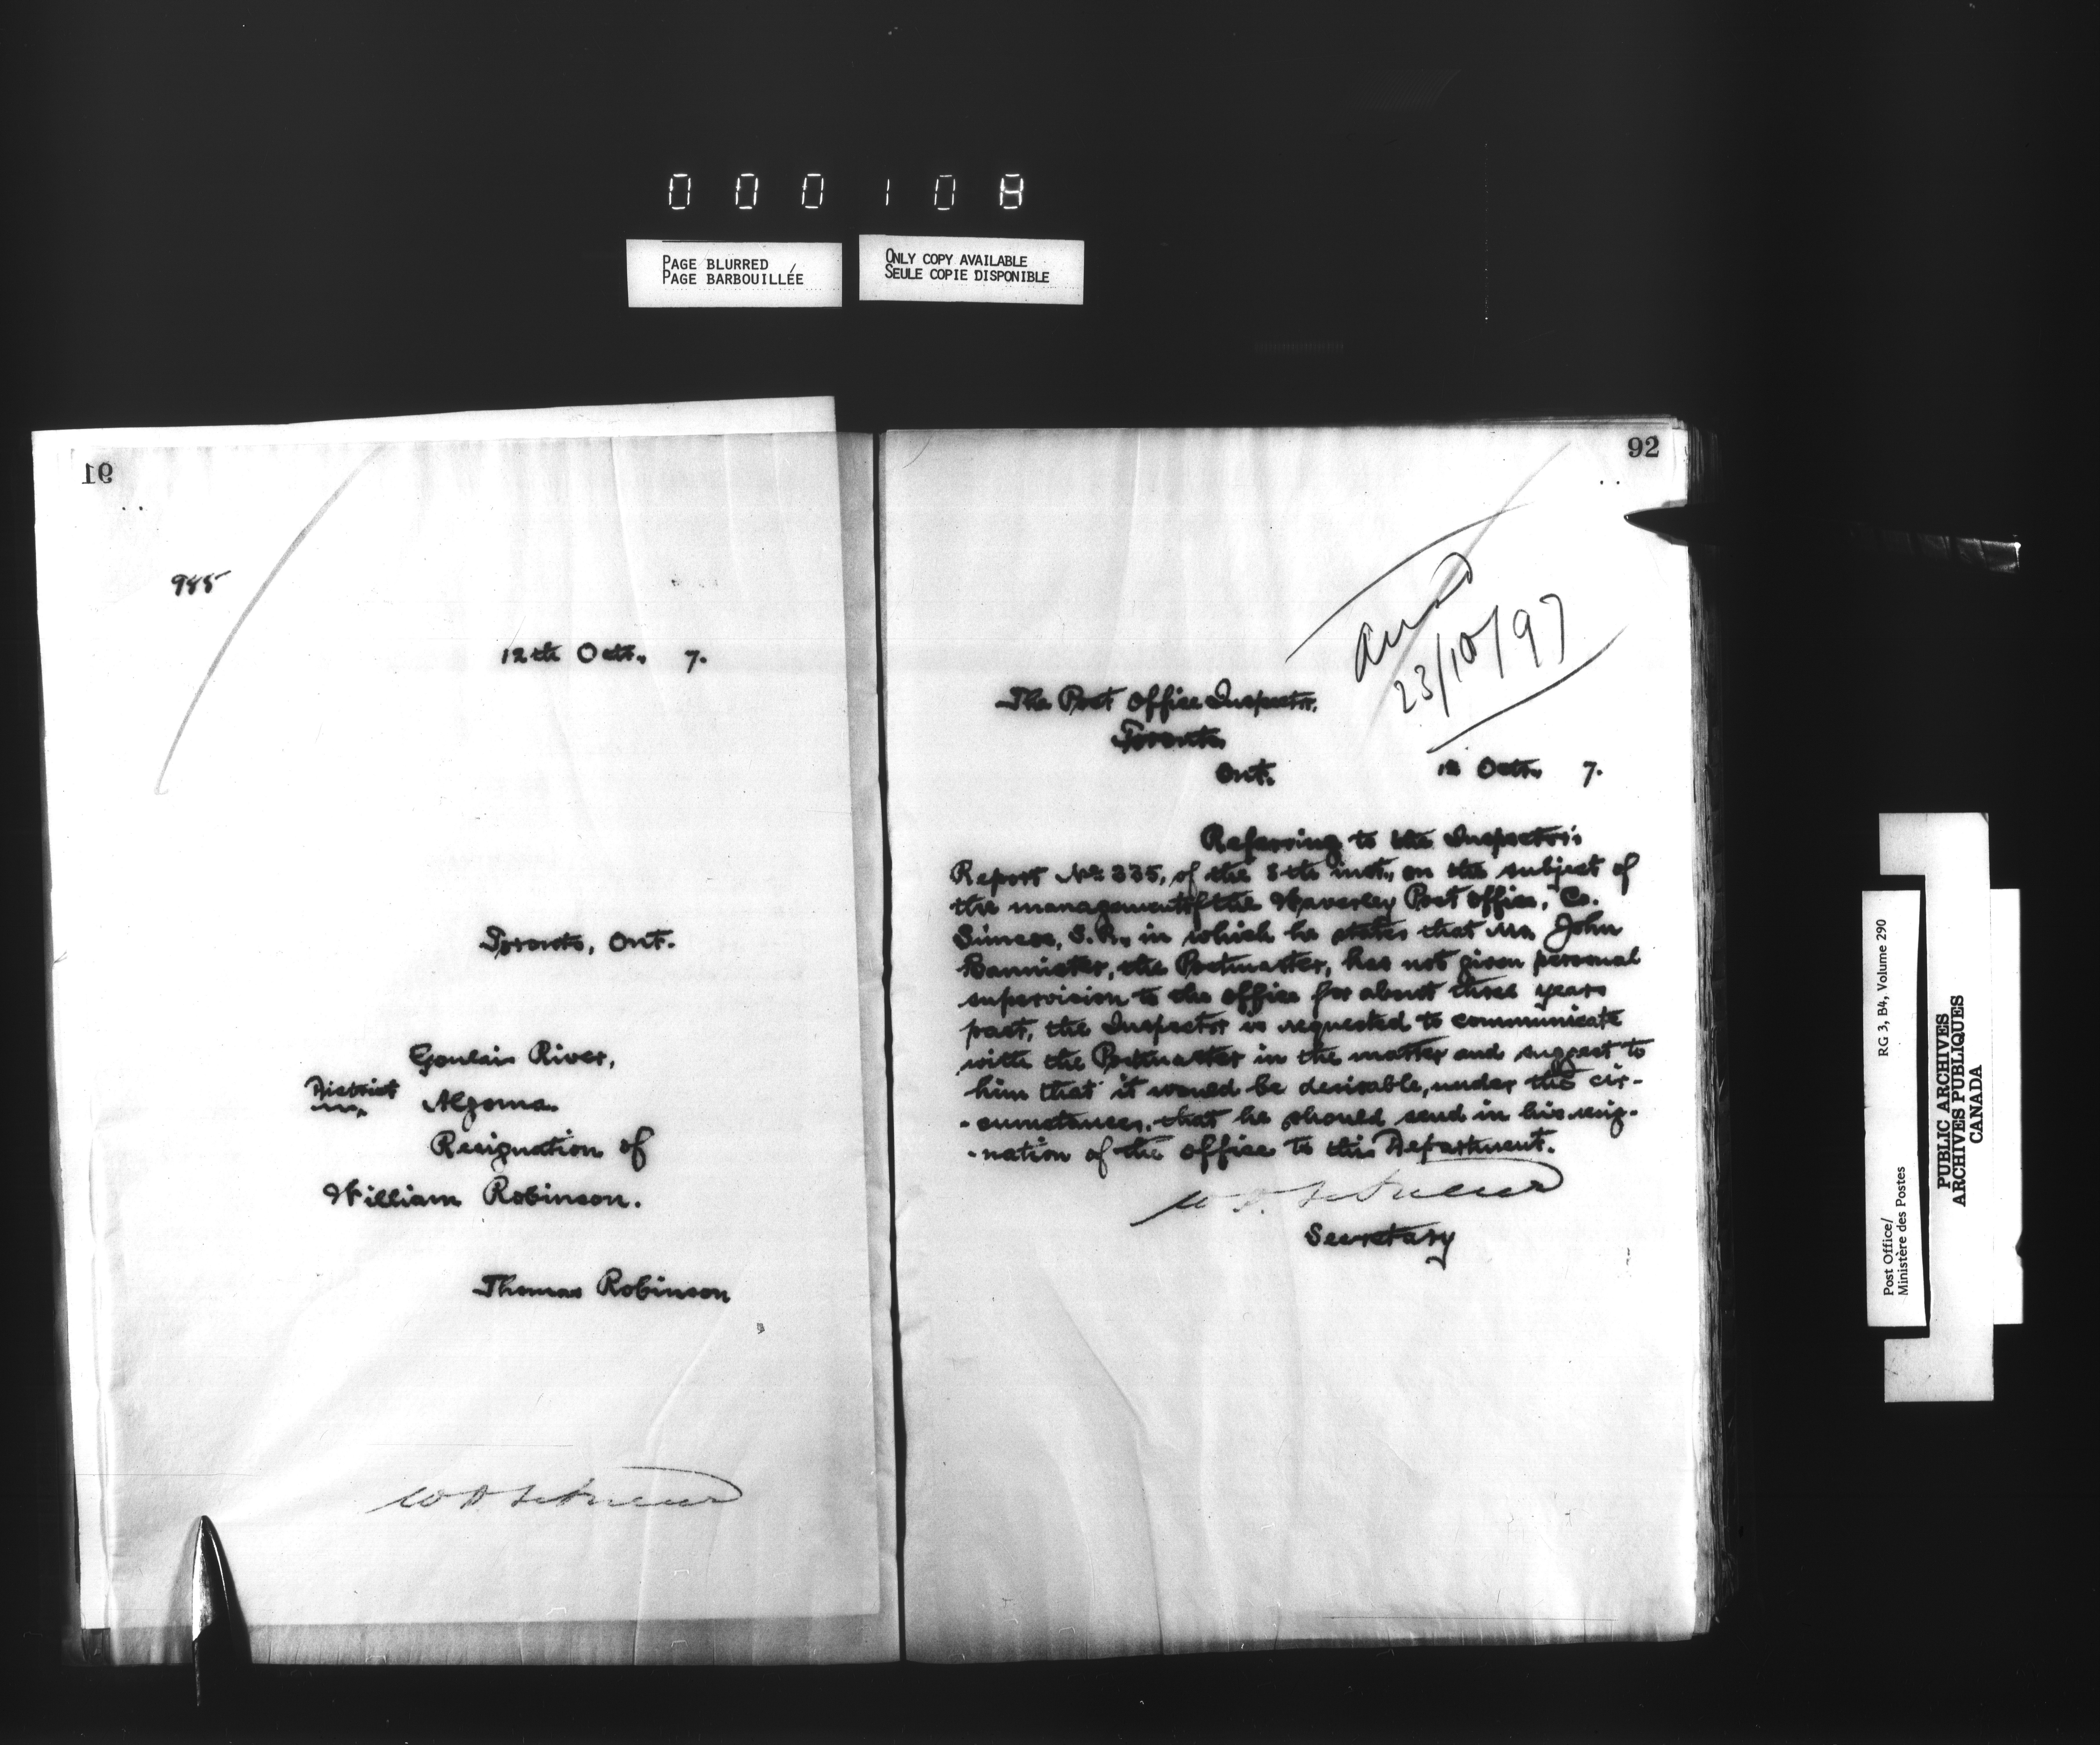 000108
PAGE BLURRED
PAGE BARBOUILLÉE
ONLY COPY AVAILABLE
SEULE COPIE DISPONIBLE
91
985
12th Octr., 7.
Toronto, Ont.
Goulais River,
District
Algoma.
Resignation of
William Robinson.
Thomas Robinson
92
23/10/97
The Post Office Inspector,
Toronto
Ont.
12 Octr., 7.
Referring to the Inspector's
Report No. 335, of the 8th inst., on the subject of
the management of the Waverley Post Office, Co.
Simcoe, S.R., in which he states that Mr. John
Bannister, the Postmaster, has not given personal
supervision to the office for about three years
past, the Inspector is requested to communicate
with the Postmaster in the matter and suggest to
him that it would be desirable, under the cir-
-cumstances, that he should send in his resig-
-nation of the office to this Department.
Secretary
Post Office/
Ministère des Postes
RG 3, B4, Volume 290
PUBLIC ARCHIVES
ARCHIVES PUBLIQUES
CANADA